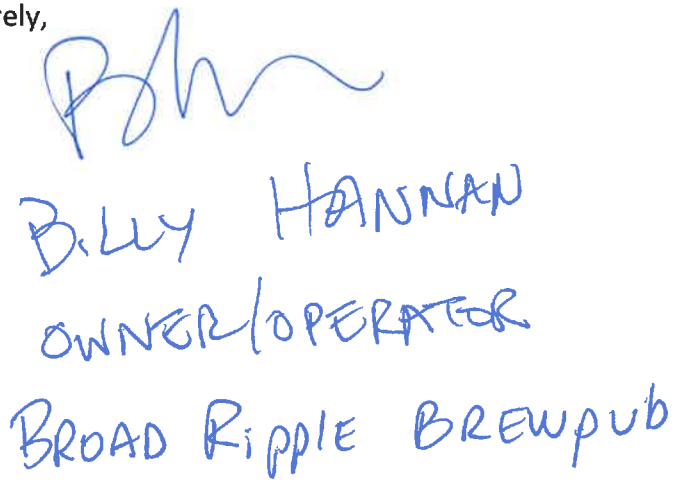 rely,
BILLY HANNAN
OWNER/OPERATOR
BROAD RipplE BREWpub